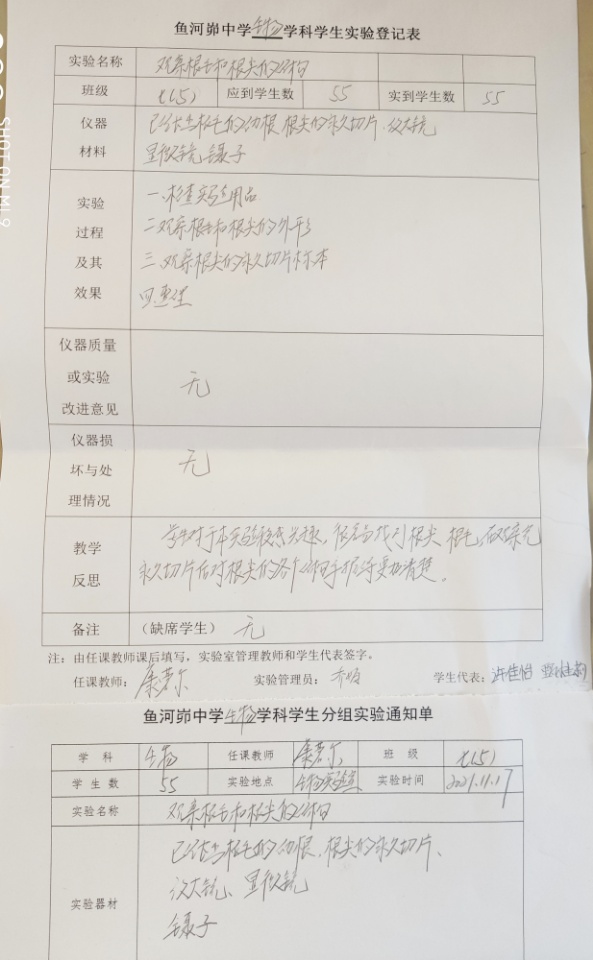 鱼河峁中学生物学科学生实验登记表
实验名称 观察根毛和根尖的结构
班级 七(5) 应到学生数 55 实到学生数 55
仪器材料 已长出根毛的幼根、根尖的永久切片、放大镜
显微镜、镊子
实验过程及其效果 一.检查实验用品
二.观察根毛和根尖的外形
三.观察根尖的永久切片标本
四.
仪器质量或实验改进意见 无
仪器损坏与处理情况 无
教学反思 学生对于本实验较感兴趣,很容易找到根尖、根毛、
永久切片后对根尖的各个结构
备注 (缺席学生) 无
注:由任课教师课后填写,实验室管理教师和学生代表签字。
任课教师: 实验管理员: 学生代表:许佳怡
鱼河峁中学生物学科学生分组实验通知单
学科 生物 任课教师 班级 七(5)
学生数 55 实验地点 生物实验室 实验时间 2021.11.17
实验名称 观察根毛和根尖的结构
实验器材 已长出根毛的幼根、根尖的永久切片、
放大镜、显微镜
镊子
SHOT ON MI 9